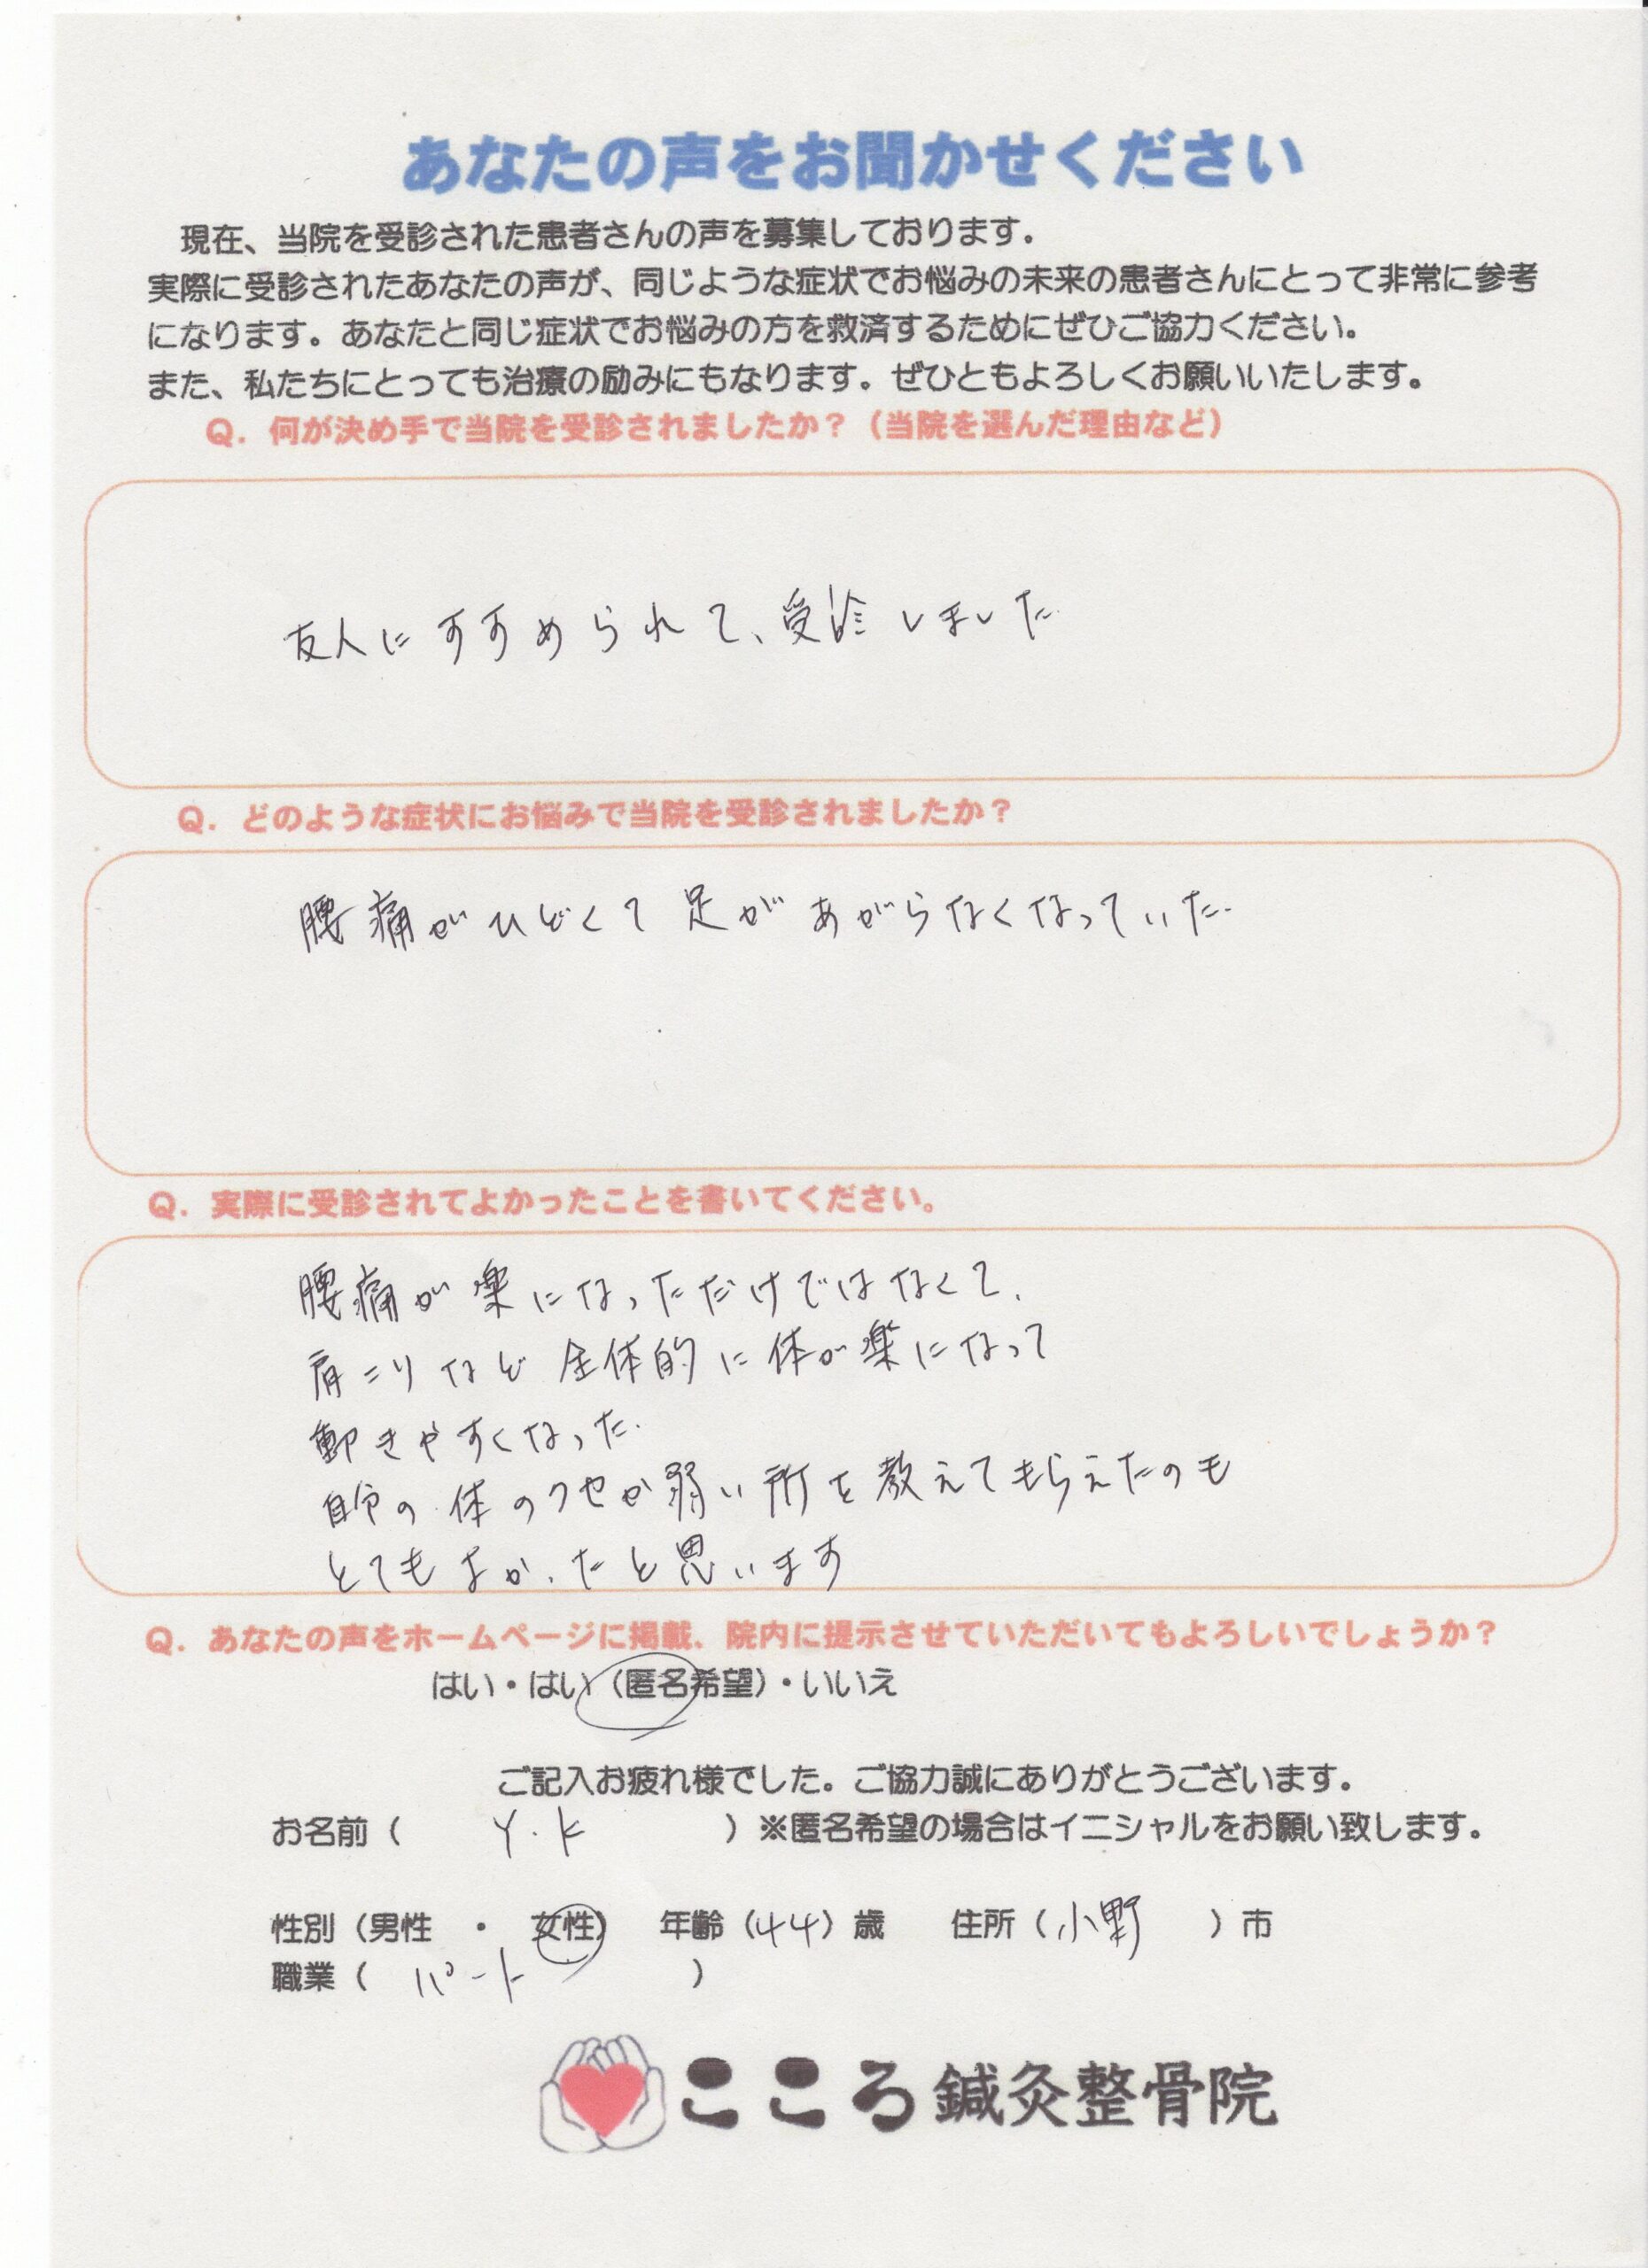 あなたの声をお聞かせください
現在、当院を受診された患者さんの声を募集しております。
実際に受診されたあなたの声が、同じような症状でお悩みの未来の患者さんにとって非常に参考
になります。あなたと同じ症状でお悩みの方を救済するためにぜひご協力ください。
また、私たちにとっても治療の励みにもなります。ぜひともよろしくお願いいたします。
Q. 何が決め手で当院を受診されましたか？（当院を選んだ理由など）
友人にすすめられて、受診しました
Q. どのような症状にお悩みで当院を受診されましたか？
腰痛がひどくて足があがらなくなっていた.
Q. 実際に受診されてよかったことを書いてください。
腰痛が楽になっただけではなくて、
肩こりなど全体的に体が楽になって
動きやすくなった.
自分の体のクセか弱い所を教えてもらえたのも
とてもよかったと思います
Q. あなたの声をホームページに掲載、院内に提示させていただいてもよろしいでしょうか？
はい・はい（匿名希望）・いいえ
ご記入お疲れ様でした。ご協力誠にありがとうございます。
お名前（ Y.K ）※匿名希望の場合はイニシャルをお願い致します。
性別（男性 ・ 女性） 年齢（44）歳 住所（小野 ）市
職業（ パート ）
こころ鍼灸整骨院